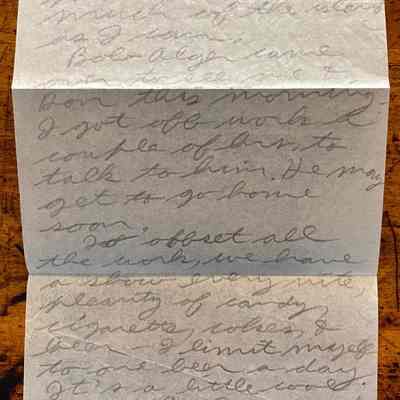 much of the island
as I can.
Bob Alger came
over to see me &
Don this morning.
I got off work a
couple of hrs, to
talk to him. He may
get to go home
soon.
To offset all
the work, we have
a show every nite,
plenty of candy,
cigarettes, cokes, &
beer - I limit myself
to one beer a day.
It's a little cool